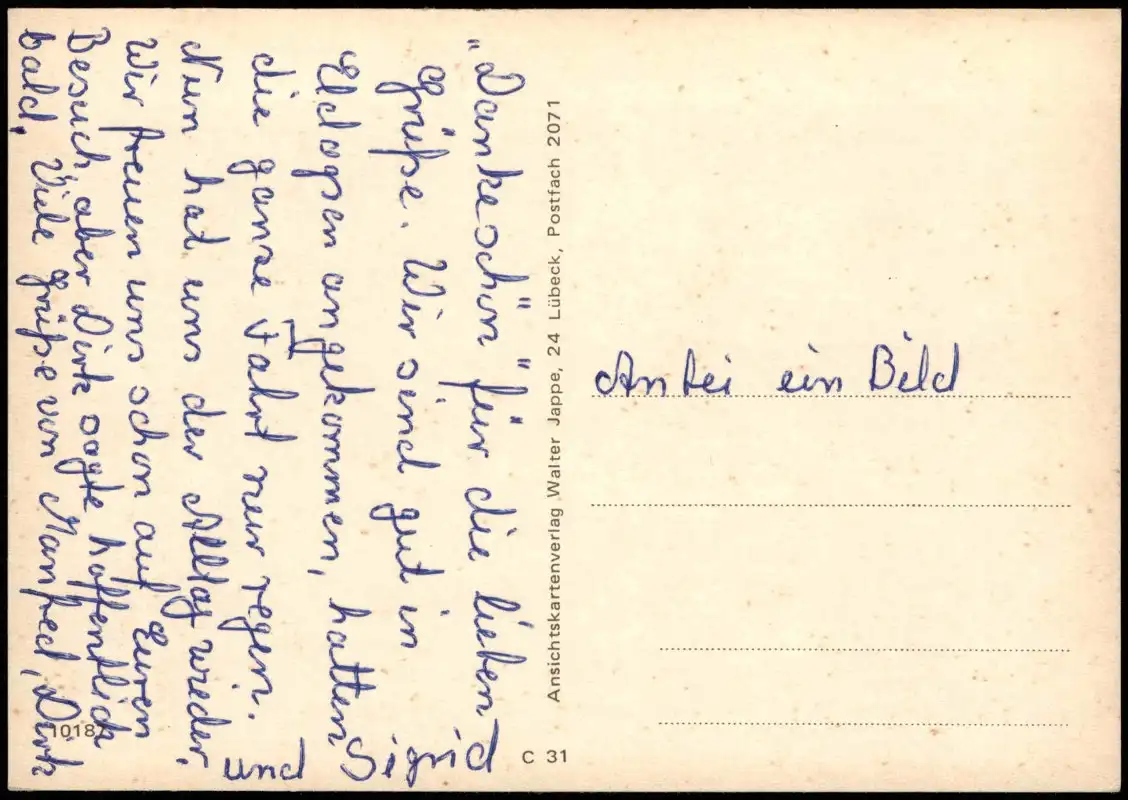 "Dankeschön" für die lieben
Grüße. Wir sind gut in
Eldagsen angekommen, hatten
die ganse Fahrt nur regen.
Nun hat uns der Alltag wieder,
Wir freuen uns schon auf Euren
Besuch, aber Dirk sagte hoffentlich
bald, Viele Grüße von Manfred, Dirk
und Sigrid
Ansichtskartenverlag Walter Jappe, 24 Lübeck, Postfach 2071
Anbei ein Bild
1018
C 31